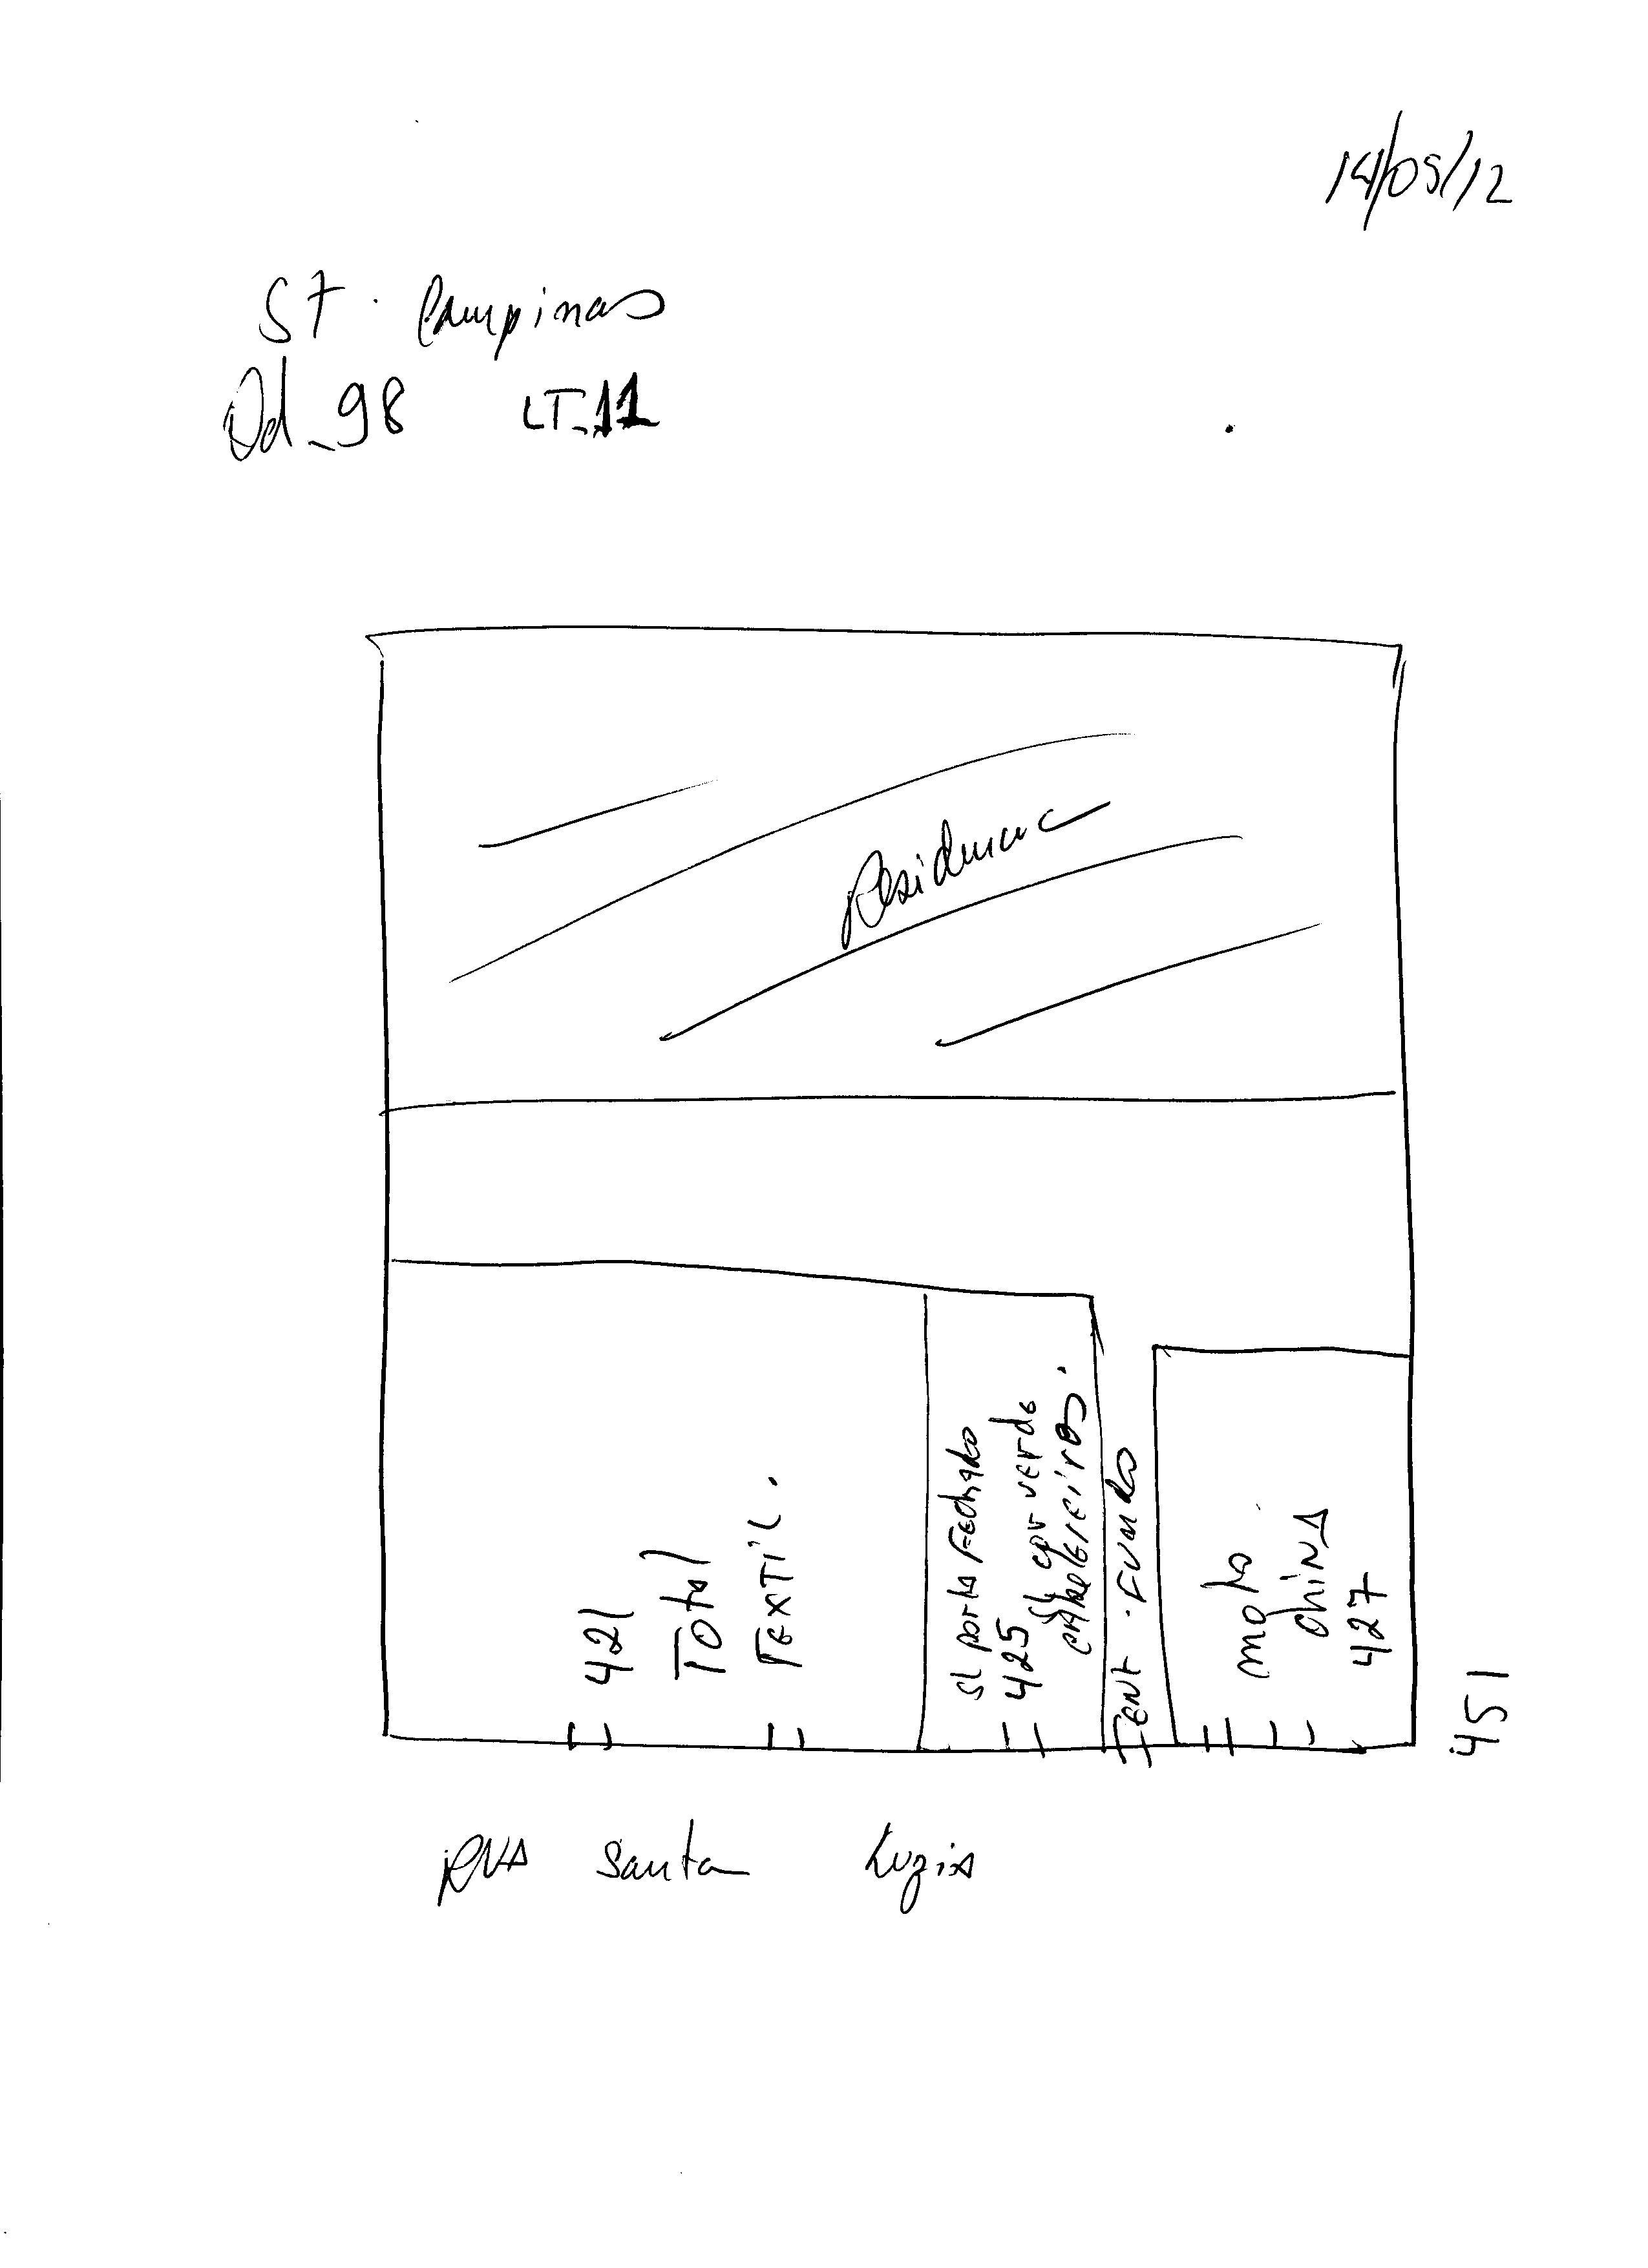 14/05/12
ST. Campinas
Qd_98 LT_11
Residencia
421
Total
TEXTIL.
SL porta Fechado
425
SL cor verde
cabeleireiros.
ENT. FUNDO
moto
china
427
451
RUA Santa Luzia